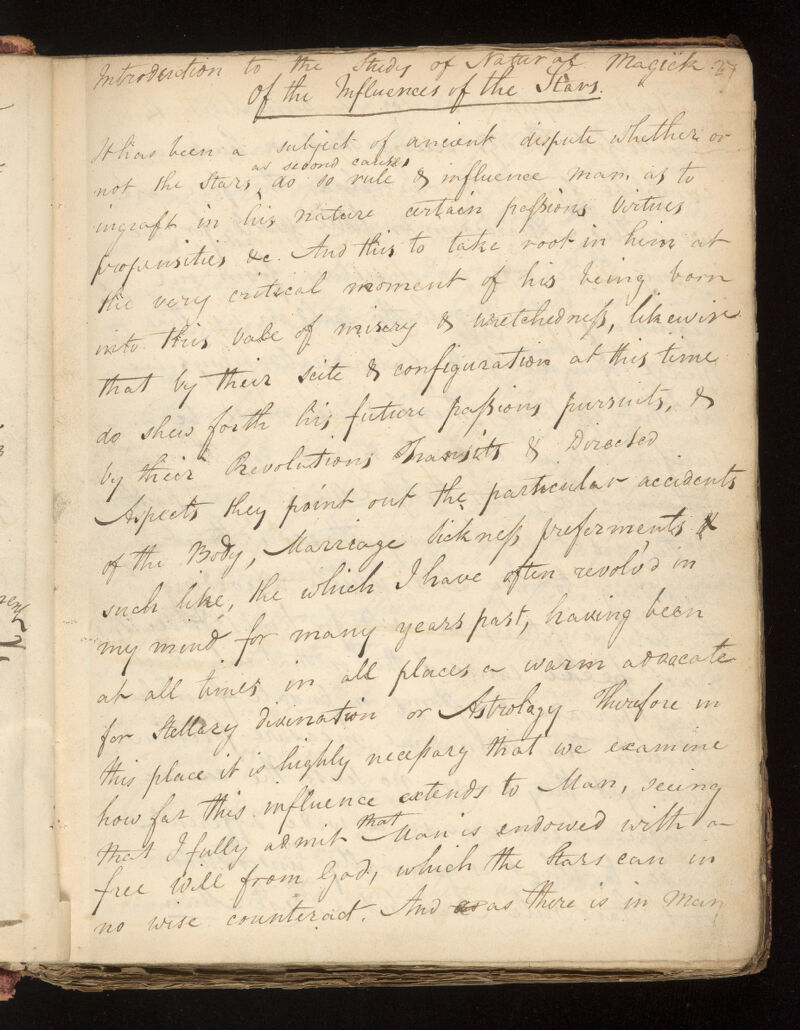 Introduction to the Study of Natural Magick 27
Of the Influences of the Stars.
It has been a subject of ancient dispute whether or
as second causes
not the Stars, do so rule & influence man as to
ingraft in his nature certain passions Virtues
propensities &c. And this to take root in him at
the very critical moment of his being born
into this vale of misery & wretchedness, likewise
that by their scite & configuration at this time
do shew forth his future passions pursuits, &
by their Revolutions Transits & Directed
Aspects they point out the particular accidents
of the Body, Marriage Sickness preferments &
such like, the which I have often revolv'd in
my mind for many years past, having been
at all times in all places a warm advocate
for Stellary divination or Astrology Therefore in
this place it is highly necessary that we examine
how far this influence extends to Man, seeing
that
that I fully admit Man is endowed with a
free Will from God, which the Stars can in
no wise counteract. And as as there is in Man